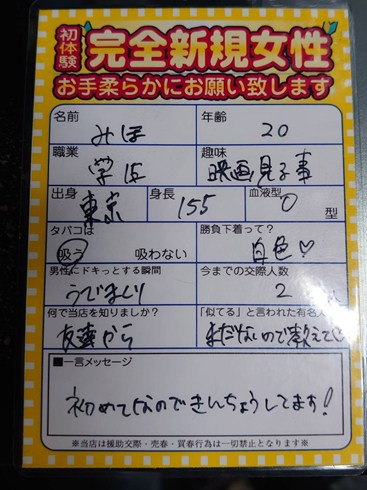 初体験
完全新規女性
お手柔らかにお願い致します
名前 みほ 年齢 20
職業 学生 趣味 映画見る事
出身 東京 身長 155 血液型 O 型
タバコは 吸う 吸わない 勝負下着って? 白色♡
男性にドキっとする瞬間 うでまくり 今までの交際人数 2 人
何で当店を知りましたか? 友達から 「似てる」と言われた有名人 まだないので教えて
■一言メッセージ
初めてなのできんちょうしてます!
※当店は援助交際・売春・買春行為は一切禁止となります※